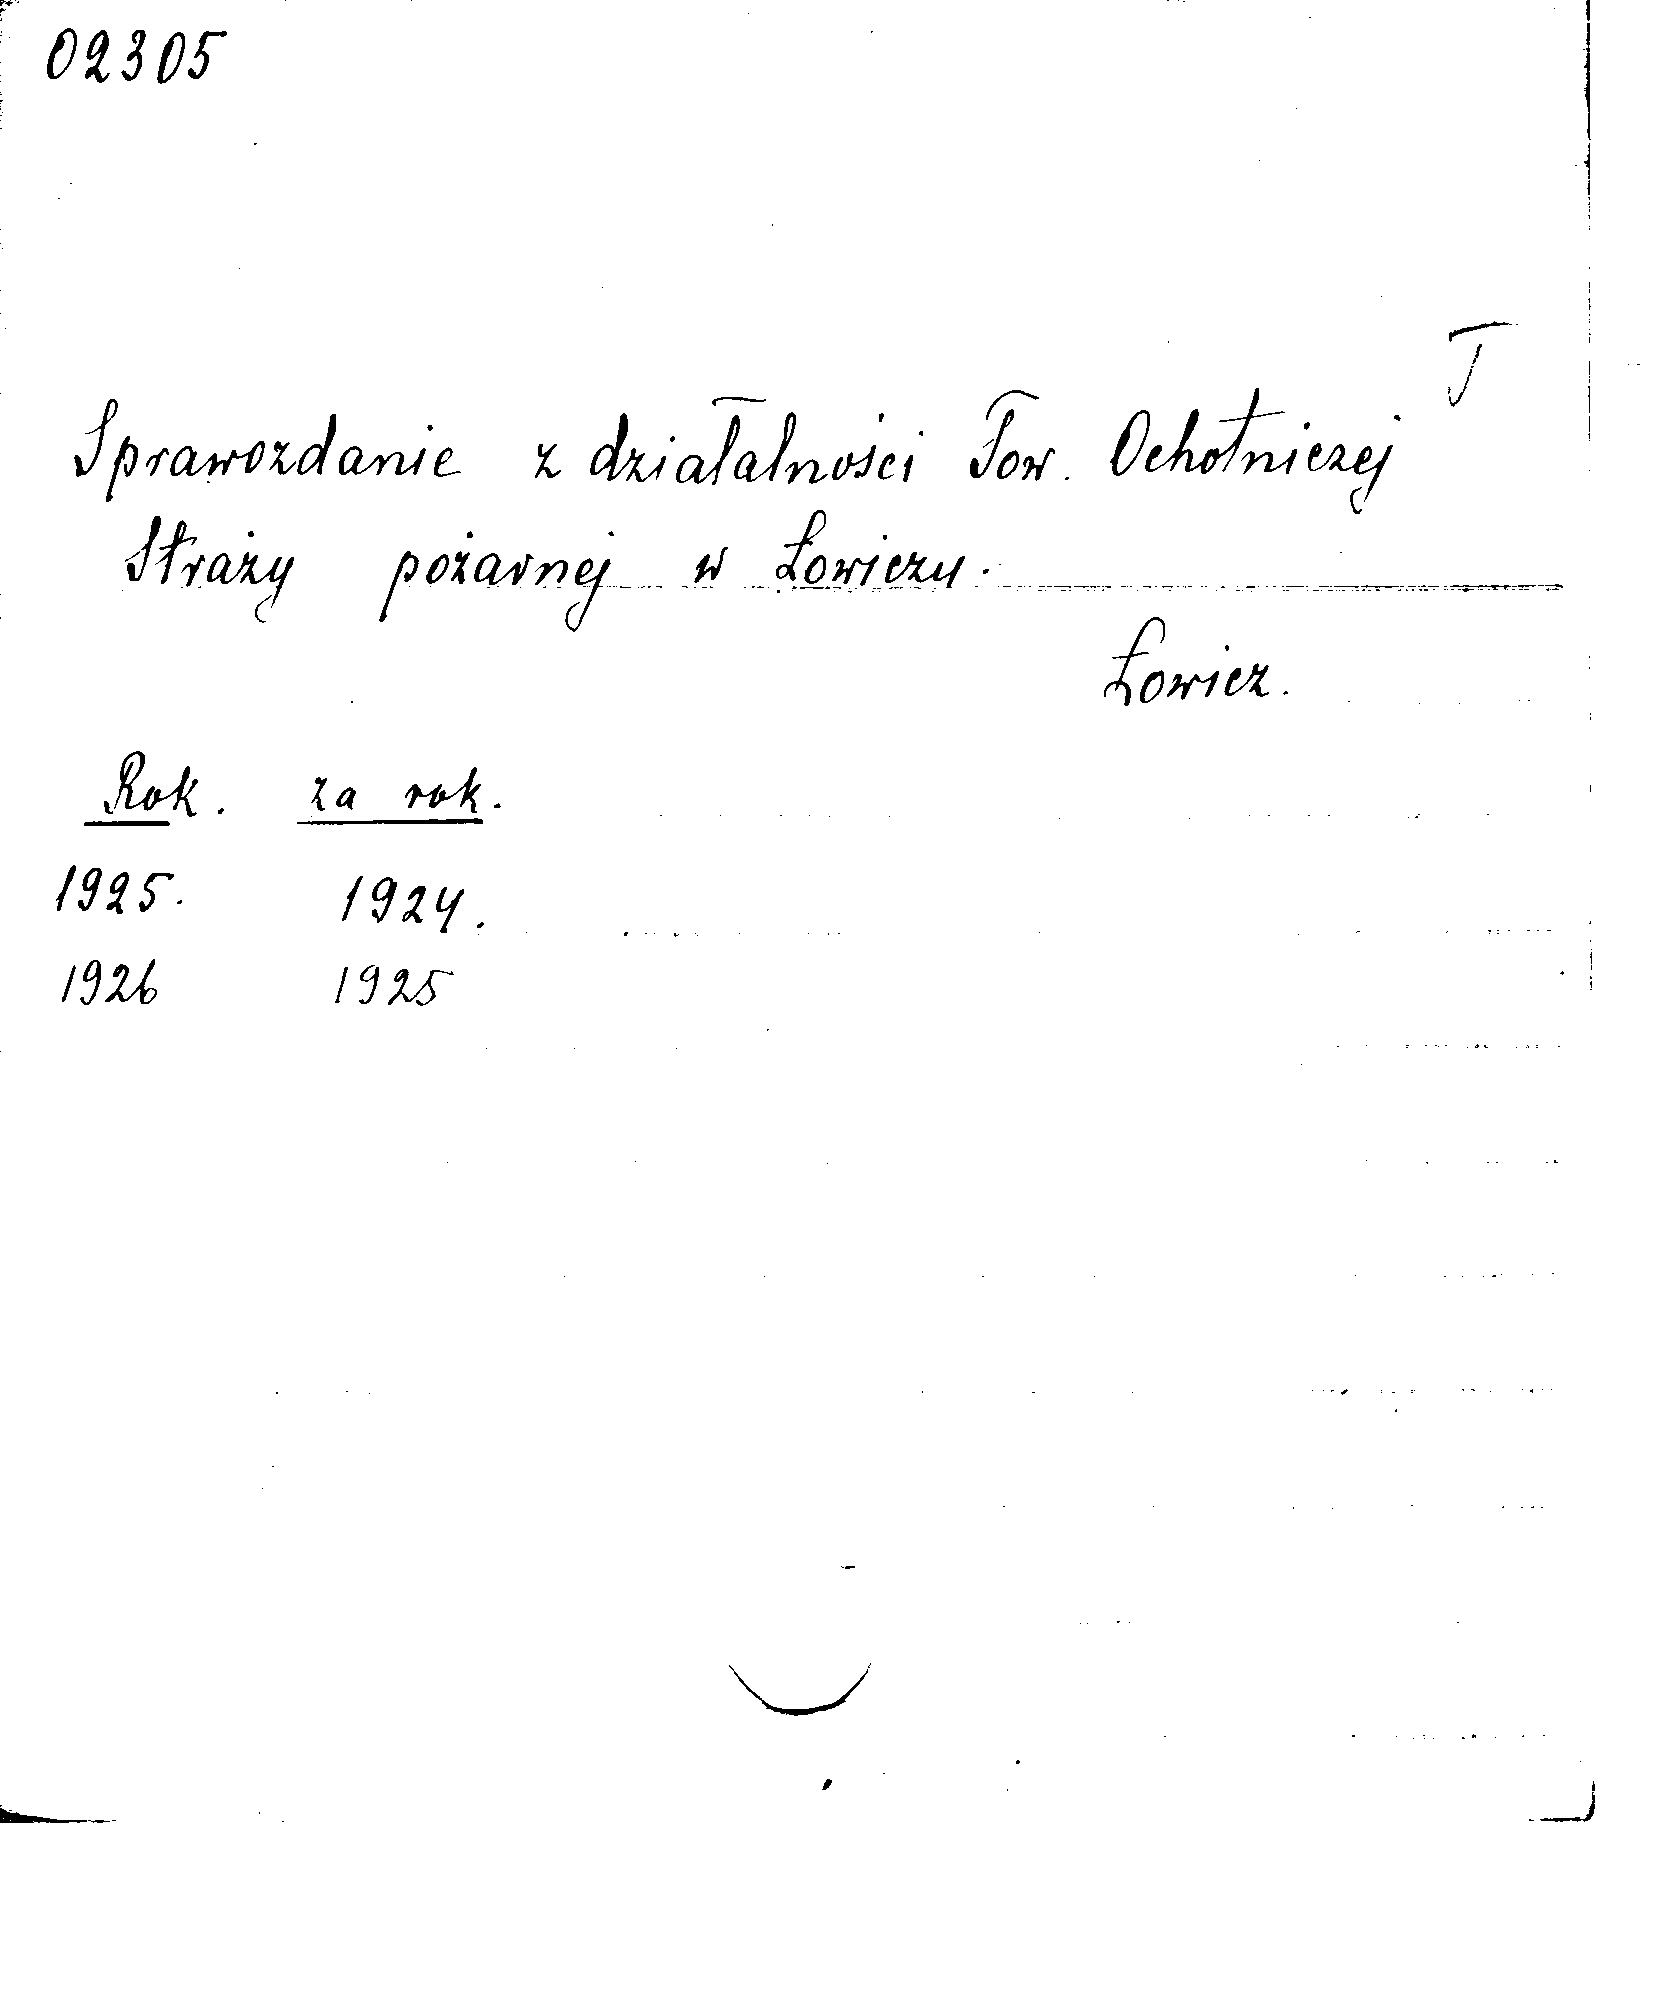 02305
T
Sprawozdanie z działalności Tow. Ochotniczej
Straży pożarnej w Łowiczu.
Łowicz.
Rok. za rok.
1925. 1924.
1926 1925